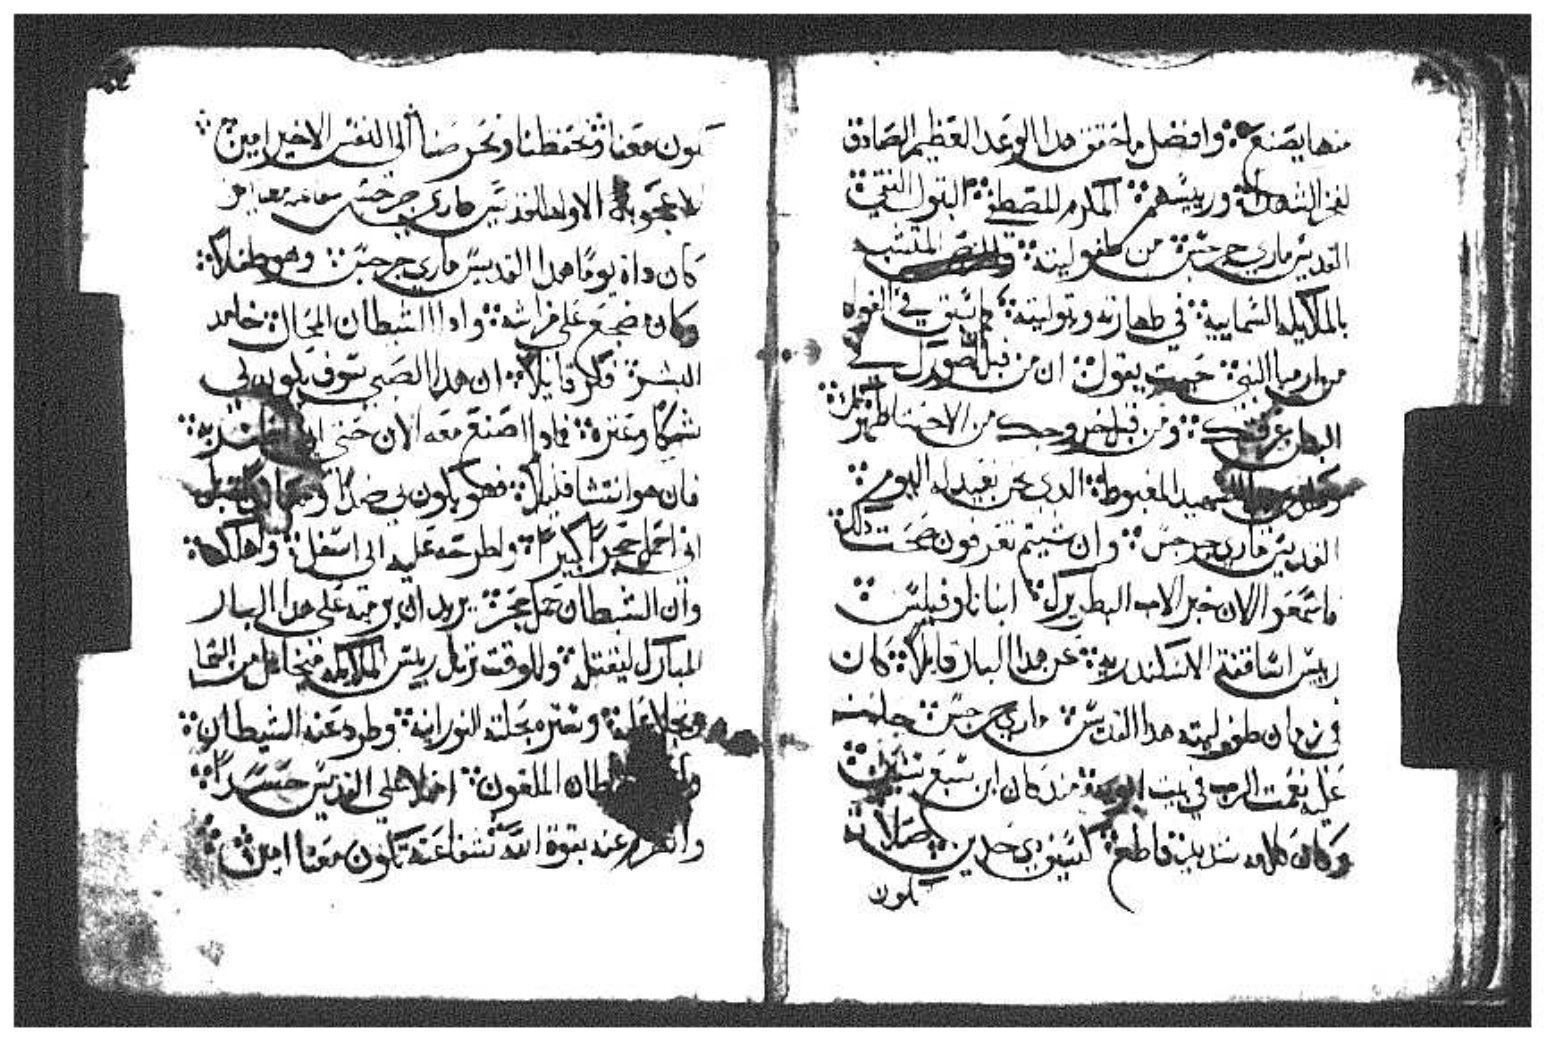 منها يصنع وافضل ما خفتن هدا الوعد العظيم الصادق
لفخر الشهدا ورييسهم المكرم المصطفي البتول النقي
القديس ماري جرجس من طفوليته المتشبه
بالملايكه السماييه في طهارته وبتوليته كما ينبغي في
من ارميا النبي حيت يقول ان من قبل اصورك في
البطن عرفتك ومن قبل خروجك من الاحشا طهرتك
الشهيد المغبوط الدي نحن نعيد له اليوم
القديس ماري جرجس وان شيتم تعرفون صحت دلك
فاسمعوا الان خبر الاب البطريرك انبا تاوفيلس
رييس اساقفة الاسكندريه عن هدا البار قايلا كان
في زمان طفوليته هدا القديس ماري جرجس حلت
عليه نعمت الرب في بيت مند كان ابن سبع سنين
وكان كلامه قاطع كسيف دي حدين صلاته
تكون
تكون معنا وتحفظنا وتحرصنا الي النفس الاخير امين
الاعجوبة الاوله للقديس ماري جرجس شفاعته معنا امين
كان داة يوما هدا القديس ماري جرجس وهو طفلا
وكان مضجع علي فراشه وادا الشيطان المحال حاسد
البشر فكر قايلا ان هدا الصبي سوف يكون لي
شكا وعتره فمادا اصنع معه الان حتي
فان هو انتشا قليلا فهو يكون لي ضدا
اني احمل حجرا كبيرا واطرحه عليه الي اسفل واهلكه
وان الشيطان حمل حجر يريد ان يرميه علي هدا البار
المبارك ليقتله وللوقت نزل رييس الملايكه ميخاييل من السما
وستره بحلته النورانيه وطرد عنه الشيطان
الشيطان الملعون امتلا علي القديس حسدا
وانهزم عنه بقوة الله شفاعته تكون معنا امين